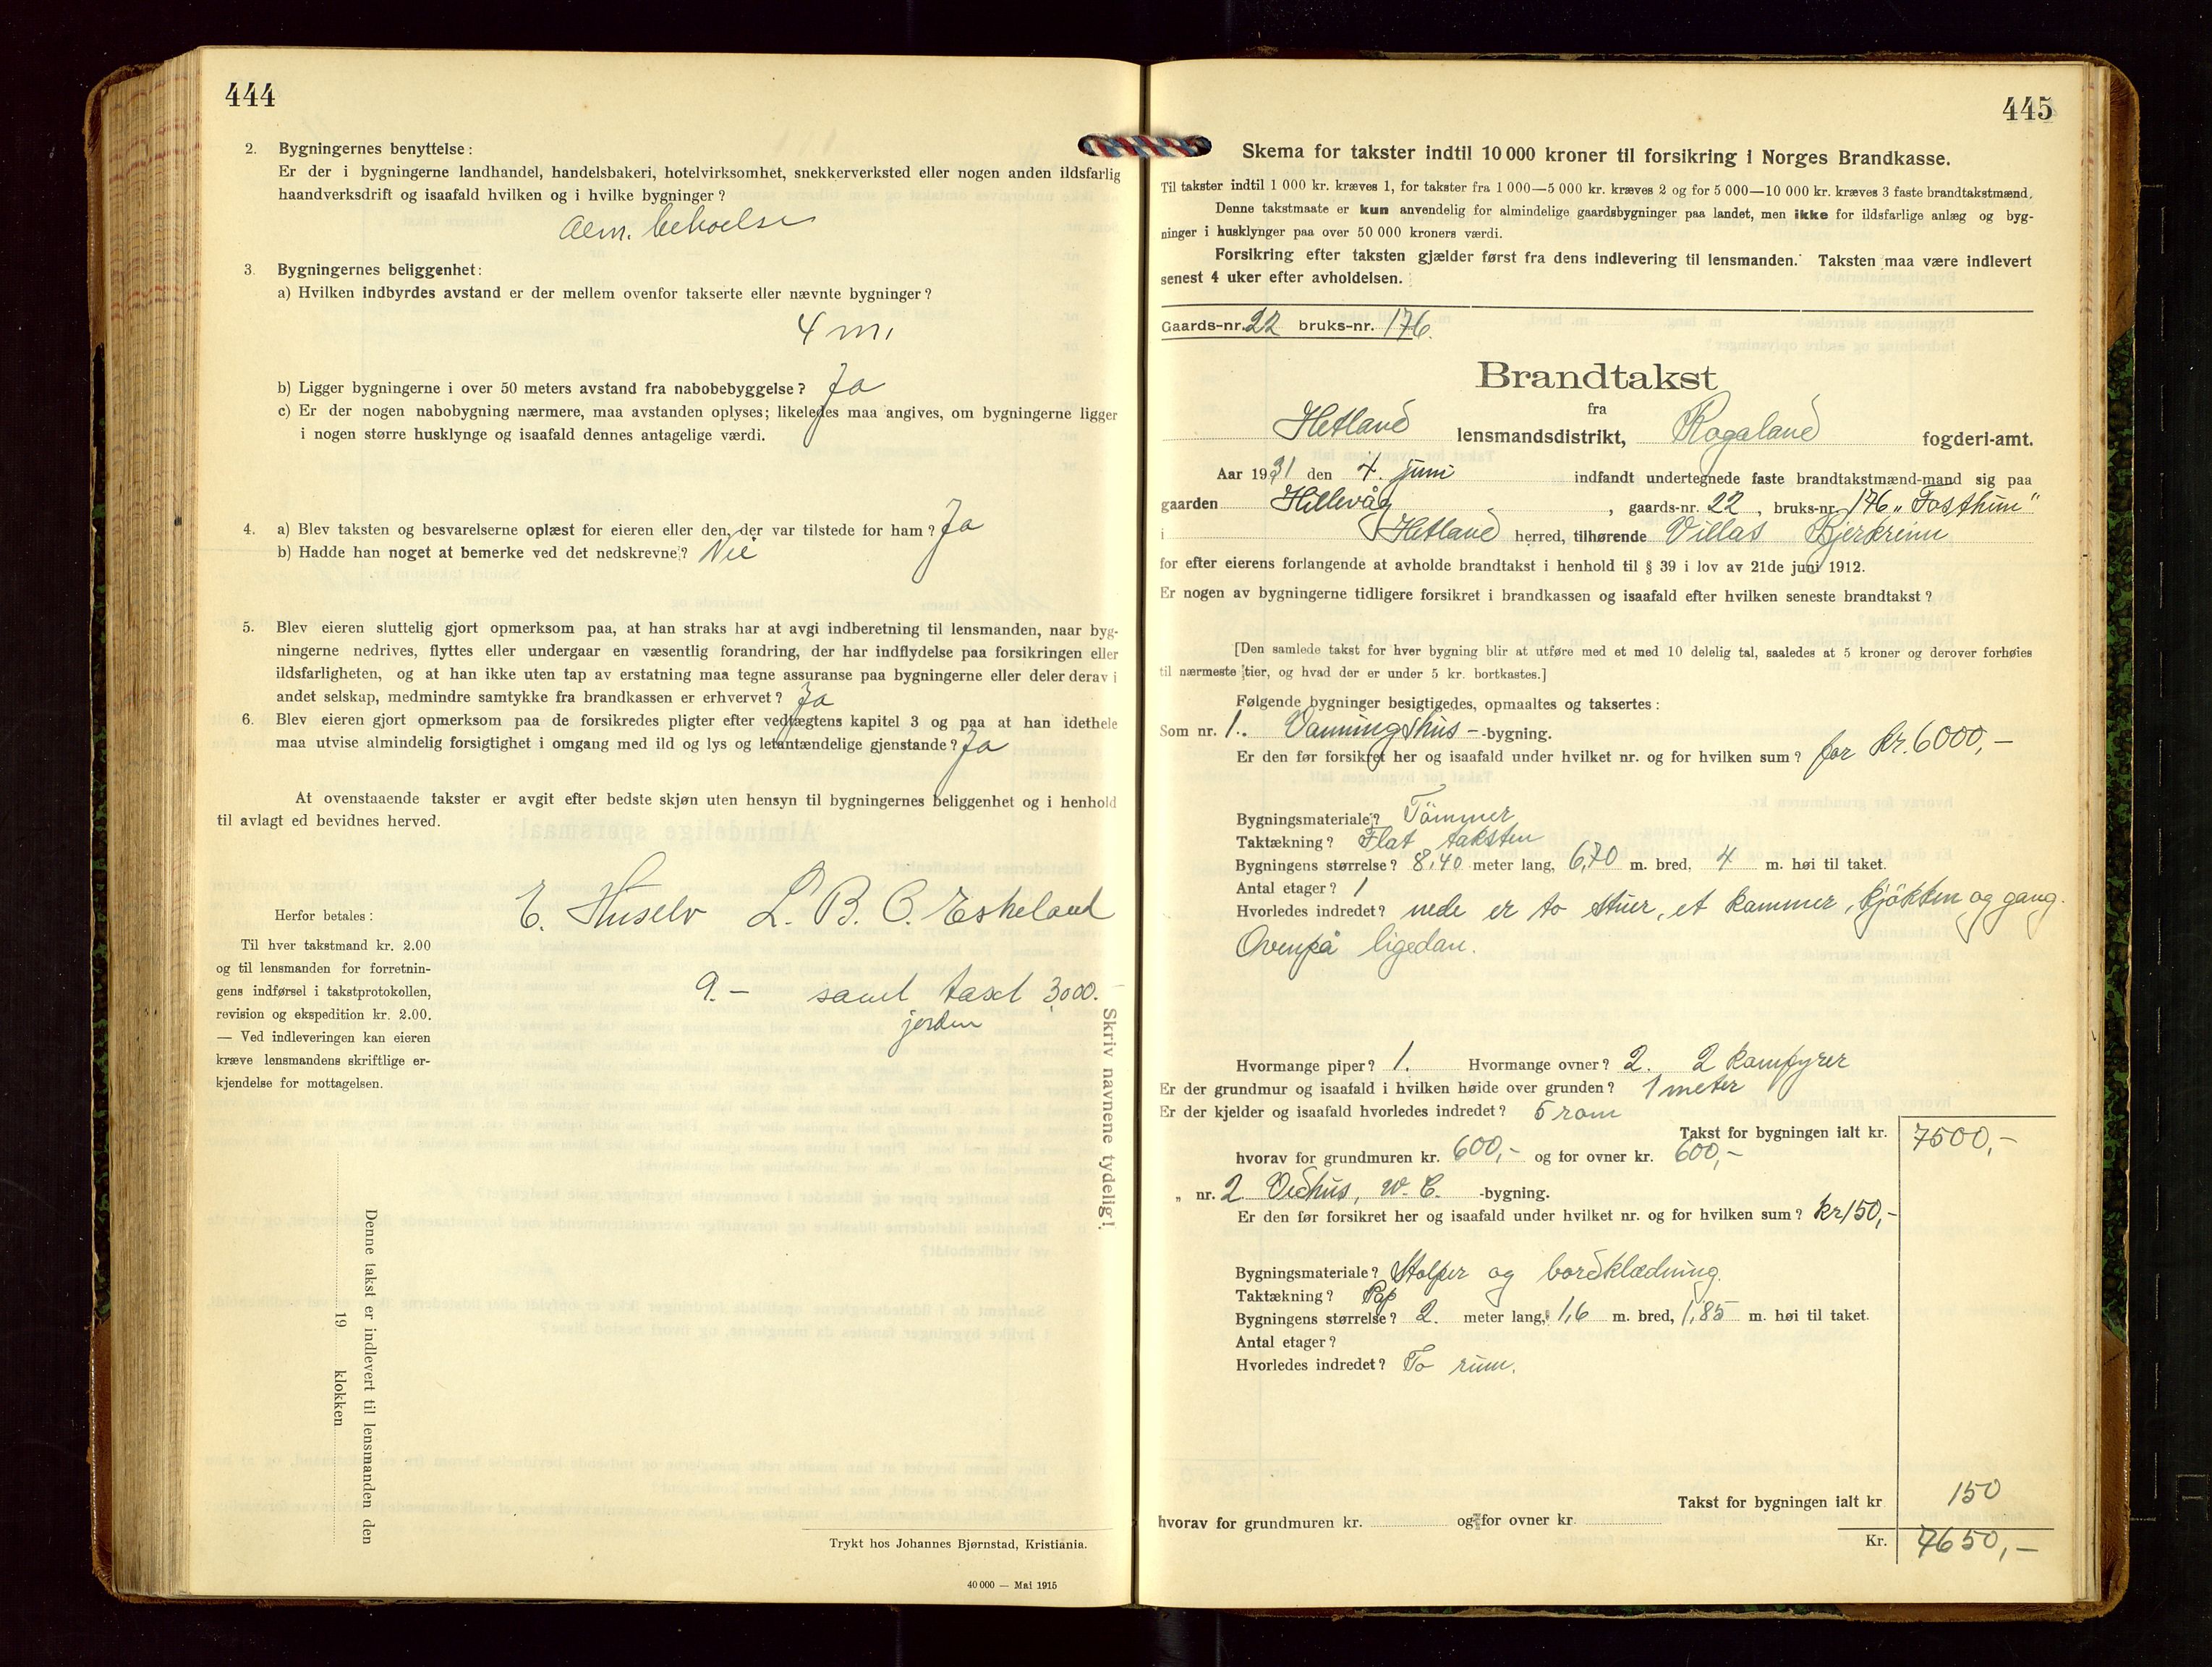 444
2. Bygningernes benyttelse:
Er der i bygningerne landhandel, handelsbakeri, hotelvirksomhet, snekkerverksted eller nogen anden ildsfarlig
haandverksdrift og isaafald hvilken og i hvilke bygninger?
Alm. beboelse
3. Bygningernes beliggenhet:
a) Hvilken indbyrdes avstand er der mellem ovenfor takserte eller nævnte bygninger?
4 m.
b) Ligger bygningerne i over 50 meters avstand fra nabobebyggelse? Ja
c) Er der nogen nabobygning nærmere, maa avstanden oplyses; likeledes maa angives, om bygningerne ligger
i nogen større husklynge og isaafald dennes antagelige værdi.
4. a) Blev taksten og besvarelserne oplæst for eieren eller den, der var tilstede for ham? Ja
b) Hadde han noget at bemerke ved det nedskrevne? Nei
5. Blev eieren sluttelig gjort opmerksom paa, at han straks har at avgi indberetning til lensmanden, naar byg-
ningerne nedrives, flyttes eller undergaar en væsentlig forandring, der har indflydelse paa forsikringen eller
ildsfarligheten, og at han ikke uten tap av erstatning maa tegne assuranse paa bygningerne eller deler derav i
andet selskap, medmindre samtykke fra brandkassen er erhvervet? Ja
6. Blev eieren gjort opmerksom paa de forsikredes pligter efter vedtægtens kapitel 3 og paa at han idethele
maa utvise almindelig forsigtighet i omgang med ild og lys og letantændelige gjenstande? Ja
At ovenstaaende takster er avgit efter bedste skjøn uten hensyn til bygningernes beliggenhet og i henhold
til avlagt ed bevidnes herved.
E. Huselv L. B. C. Eskeland
Herfor betales:
Til hver takstmand kr. 2.00
og til lensmanden for forretnin-
gens indførsel i takstprotokollen,
revision og ekspedition kr. 2.00.
— Ved indleveringen kan eieren
kræve lensmandens skriftlige er-
kjendelse for mottagelsen.
9.- samt taxt 3000.
jorden
Skriv navnene tydelig!
Denne takst er indlevert til lensmanden den
19 klokken
Trykt hos Johannes Bjørnstad, Kristiania.
40 000 — Mai 1915
445
Skema for takster indtil 10 000 kroner til forsikring i Norges Brandkasse.
Til takster indtil 1 000 kr. kræves 1, for takster fra 1 000—5 000 kr. kræves 2 og for 5 000—10 000 kr. kræves 3 faste brandtakstmænd.
Denne takstmaate er kun anvendelig for almindelige gaardsbygninger paa landet, men ikke for ildsfarlige anlæg og byg-
ninger i husklynger paa over 50 000 kroners værdi.
Forsikring efter taksten gjælder først fra dens indlevering til lensmanden. Taksten maa være indlevert
senest 4 uker efter avholdelsen.
Gaards-nr. 22 bruks-nr. 176.
Brandtakst
fra
Hetland lensmandsdistrikt, Rogaland fogderi-amt.
Aar 1931 den 4. juni indfandt undertegnede faste brandtakstmænd-mand sig paa
gaarden Hillevåg, gaards-nr. 22, bruks-nr. 176 „Fasthim“
i Hetland herred, tilhørende Villas Bjerkreim
for efter eierens forlangende at avholde brandtakst i henhold til § 39 i lov av 21de juni 1912.
Er nogen av bygningerne tidligere forsikret i brandkassen og isaafald efter hvilken seneste brandtakst?
[Den samlede takst for hver bygning blir at utføre med et med 10 delelig tal, saaledes at 5 kroner og derover forhøies
til nærmeste tier, og hvad der er under 5 kr. bortkastes.]
Følgende bygninger besigtigedes, opmaaltes og taksertes:
Som nr. 1. Vaaningshus- -bygning.
Er den før forsikret her og isaafald under hvilket nr. og for hvilken sum? for kr. 6000,-
Bygningsmateriale? Tömmer
Taktækning? Flat taksten
Bygningens størrelse? 8,40 meter lang, 6,70 m. bred, 4 m. høi til taket.
Antal etager? 1
Hvorledes indredet? nede er to stuer, et kammer, kjökken og gang.
Ovenpå ligedan.
Hvormange piper? 1. Hvormange ovner? 2. 2 komfyrer
Er der grundmur og isaafald i hvilken høide over grunden? 1 meter
Er der kjelder og isaafald hvorledes indredet? 5 rom
Takst for bygningen ialt kr. 7500,-
hvorav for grundmuren kr. 600,- og for ovner kr. 600,-
„ nr. 2 Vedhus, W. C. -bygning.
Er den før forsikret her og isaafald under hvilket nr. og for hvilken sum? kr 150,-
Bygningsmateriale? Stolper og bordklædning.
Taktækning? Pap
Bygningens størrelse? 2. meter lang, 1,6 m. bred, 1,85 m. høi til taket.
Antal etager?
Hvorledes indredet? To rum.
Takst for bygningen ialt kr 150
hvorav for grundmuren kr. og for ovner kr.
Kr. 7650,-